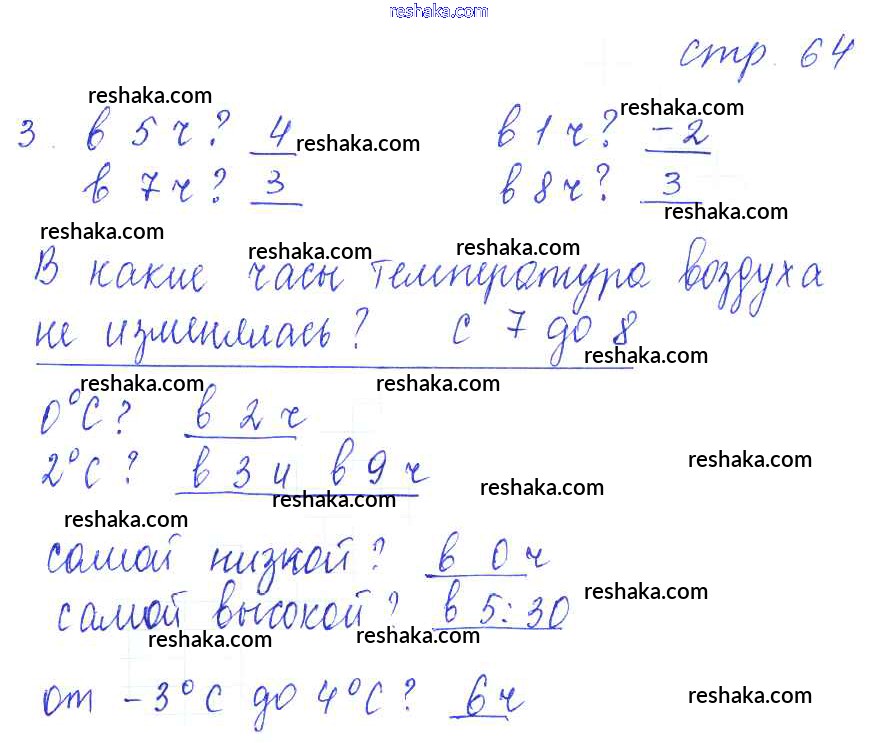 reshaka.com
стр. 64
reshaka.com reshaka.com
3. в 5 ч? 4 reshaka.com в 1 ч? -2
в 7 ч? 3 в 8 ч? 3
reshaka.com reshaka.com
reshaka.com reshaka.com
В какие часы температура воздуха
не изменялась? с 7 до 8
reshaka.com
reshaka.com reshaka.com
0°С? в 2 ч
2°С? в 3 и в 9 ч
reshaka.com
reshaka.com reshaka.com
reshaka.com
самой низкой? в 0 ч
reshaka.com
самой высокой? в 5:30
reshaka.com reshaka.com
от -3°С до 4°С? 6 ч
reshaka.com